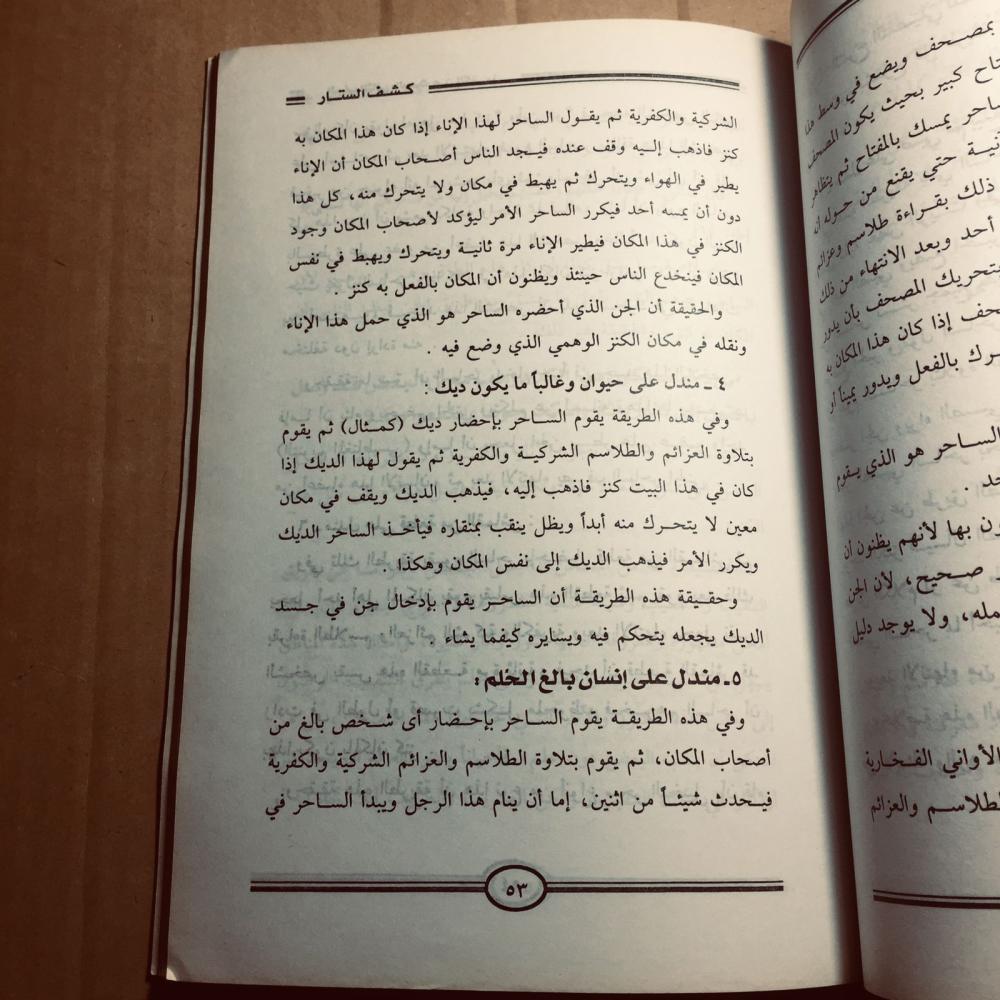 بمصحف ويضع في وسط هذا
تاح كبير بحيث يكون المصحف
ساحر يمسك بالمفتاح ثم يتظاهر
نية حتي يقنع من حوله أن
ذلك بقراءة طلاسم وعزائم
أحد وبعد الانتهاء من ذلك
تحريك المصحف بأن يدور
حف إذا كان هذا المكان به
رك بالفعل ويدور يميناً أو
الساحر هو الذي يقوم
حد .
ون بها لأنهم يظنون أن
صحيح، لأن الجن
مله، ولا يوجد دليل
الأواني الفخارية
لطلاسم والعزائم
كشف الستار
الشركية والكفرية ثم يقول الساحر لهذا الإناء إذا كان هذا المكان به
كنز فاذهب إليه وقف عنده فيجد الناس أصحاب المكان أن الإناء
يطير في الهواء ويتحرك ثم يهبط في مكان ولا يتحرك منه، كل هذا
دون أن يمسه أحد فيكرر الساحر الأمر ليؤكد لأصحاب المكان وجود
الكنز في هذا المكان فيطير الإناء مرة ثانية ويتحرك ويهبط في نفس
المكان فينخدع الناس حينئذ ويظنون أن المكان بالفعل به كنز .
والحقيقة أن الجن الذي أحضره الساحر هو الذي حمل هذا الإناء
ونقله في مكان الكنز الوهمي الذي وضع فيه .
٤ ـ مندل على حيوان وغالباً ما يكون ديك :
وفي هذه الطريقة يقوم الساحر بإحضار ديك (كمثال) ثم يقوم
بتلاوة العزائم والطلاسم الشركية والكفرية ثم يقول لهذا الديك إذا
كان في هذا البيت كنز فاذهب إليه، فيذهب الديك ويقف في مكان
معين لا يتحرك منه أبداً ويظل ينقب بمنقاره فيأخذ الساحر الديك
ويكرر الأمر فيذهب الديك إلى نفس المكان وهكذا .
وحقيقة هذه الطريقة أن الساحر يقوم بإدخال جن في جسد
الديك يجعله يتحكم فيه ويسايره كيفما يشاء .
٥ ـ مندل على إنسان بالغ الحلم :
وفي هذه الطريقة يقوم الساحر بإحضار أى شخص بالغ من
أصحاب المكان، ثم يقوم بتلاوة الطلاسم والعزائم الشركية والكفرية
فيحدث شيئاً من اثنين، إما أن ينام هذا الرجل ويبدأ الساحر في
٥٣